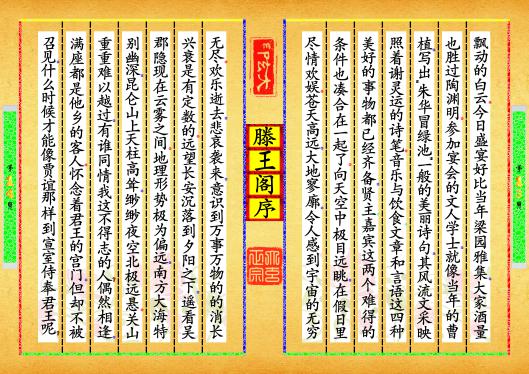 飘动的白云今日盛宴好比当年梁园雅集大家酒量
也胜过陶渊明参加宴会的文人学士就像当年的曹
植写出“朱华冒绿池”一般的美丽诗句其风流文采映
照着谢灵运的诗笔音乐与饮食文章和言语这四种
美好的事物都已经齐备贤主嘉宾这两个难得的
条件也凑合在一起了向天空中极目远眺在假日里
尽情欢娱苍天高远大地寥廓令人感到宇宙的无穷
滕王阁序
无尽欢乐逝去悲哀袭来意识到万事万物的的消长
兴衰是有定数的远望长安沉落到夕阳之下遥看吴
郡隐现在云雾之间地理形势极为偏远南方大海特
别幽深昆仑山上天柱高耸缈缈夜空北极远悬关山
重重难以越过有谁同情我这不得志的人偶然相逢
满座都是他乡的客人怀念着君王的宫门但却不被
召见什么时候才能像贾谊那样到宣室侍奉君王呢